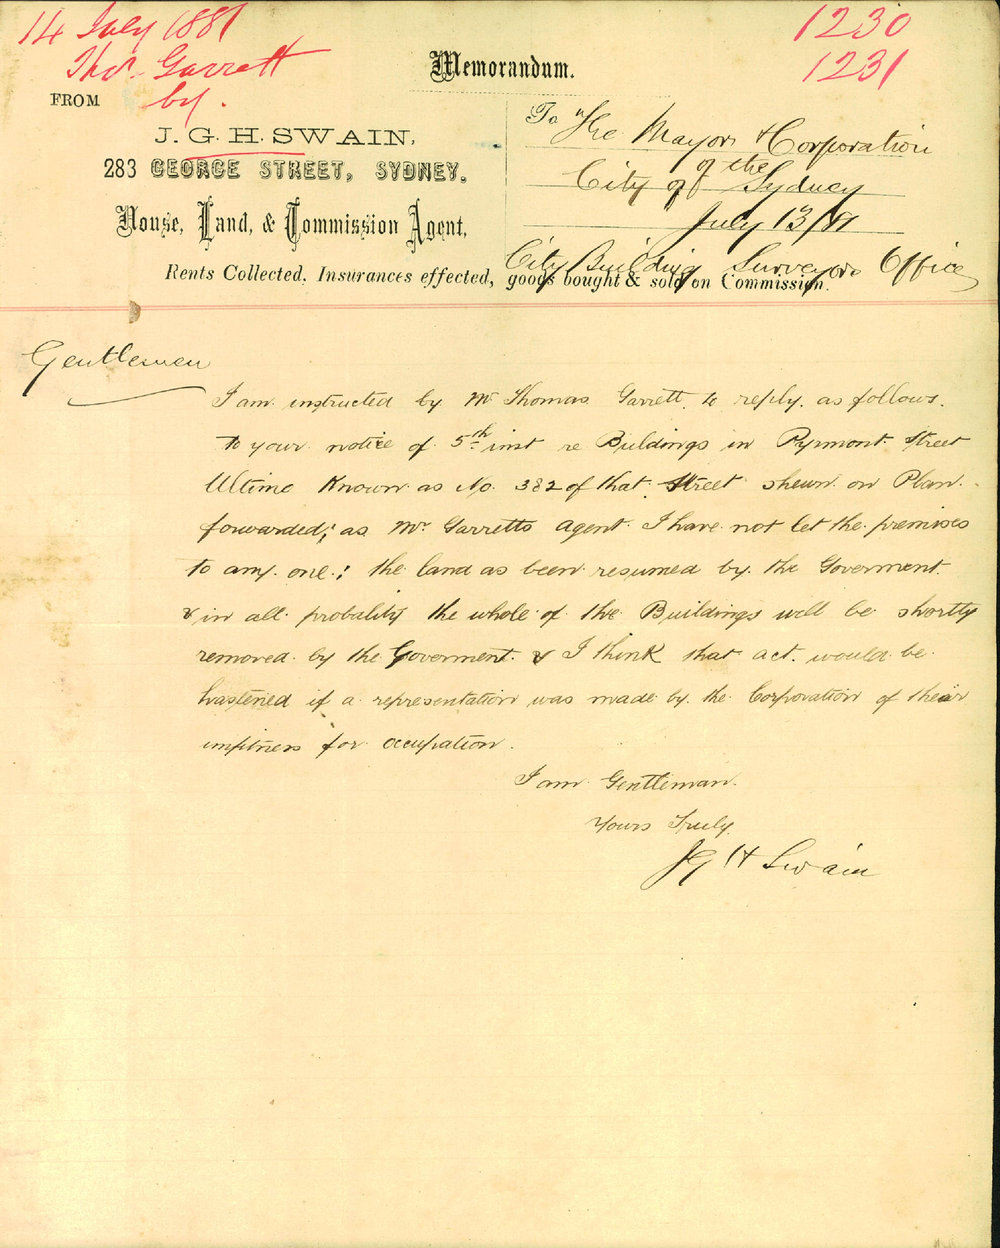 14 July 1881
1230
Thos. Garrett
1231
by.
Memorandum.
FROM
J. G. H. SWAIN,
283 GEORGE STREET, SYDNEY.
House, Land, & Commission Agent,
Rents Collected, Insurances effected, goods bought & sold on Commission.
To The Mayor & Corporation
of the
City of Sydney
July 13/81
City Building Surveyors Office
Gentlemen
I am instructed by Mr Thomas Garrett to reply as follows.
to your notice of 5th inst re Buildings in Pyrmont Street
Ultimo Known as No. 382 of that Street shewn on Plan
forwarded; as Mr Garretts Agent I have not let the premises
to any one: the land as been resumed by the Goverment
& in all probality the whole of the Buildings will be shortly
removed by the Goverment & I think that act would be
hastened if a representation was made by the Corporation of their
unfitness for occupation.
I am Gentleman.
Yours Truly
J G H Swain